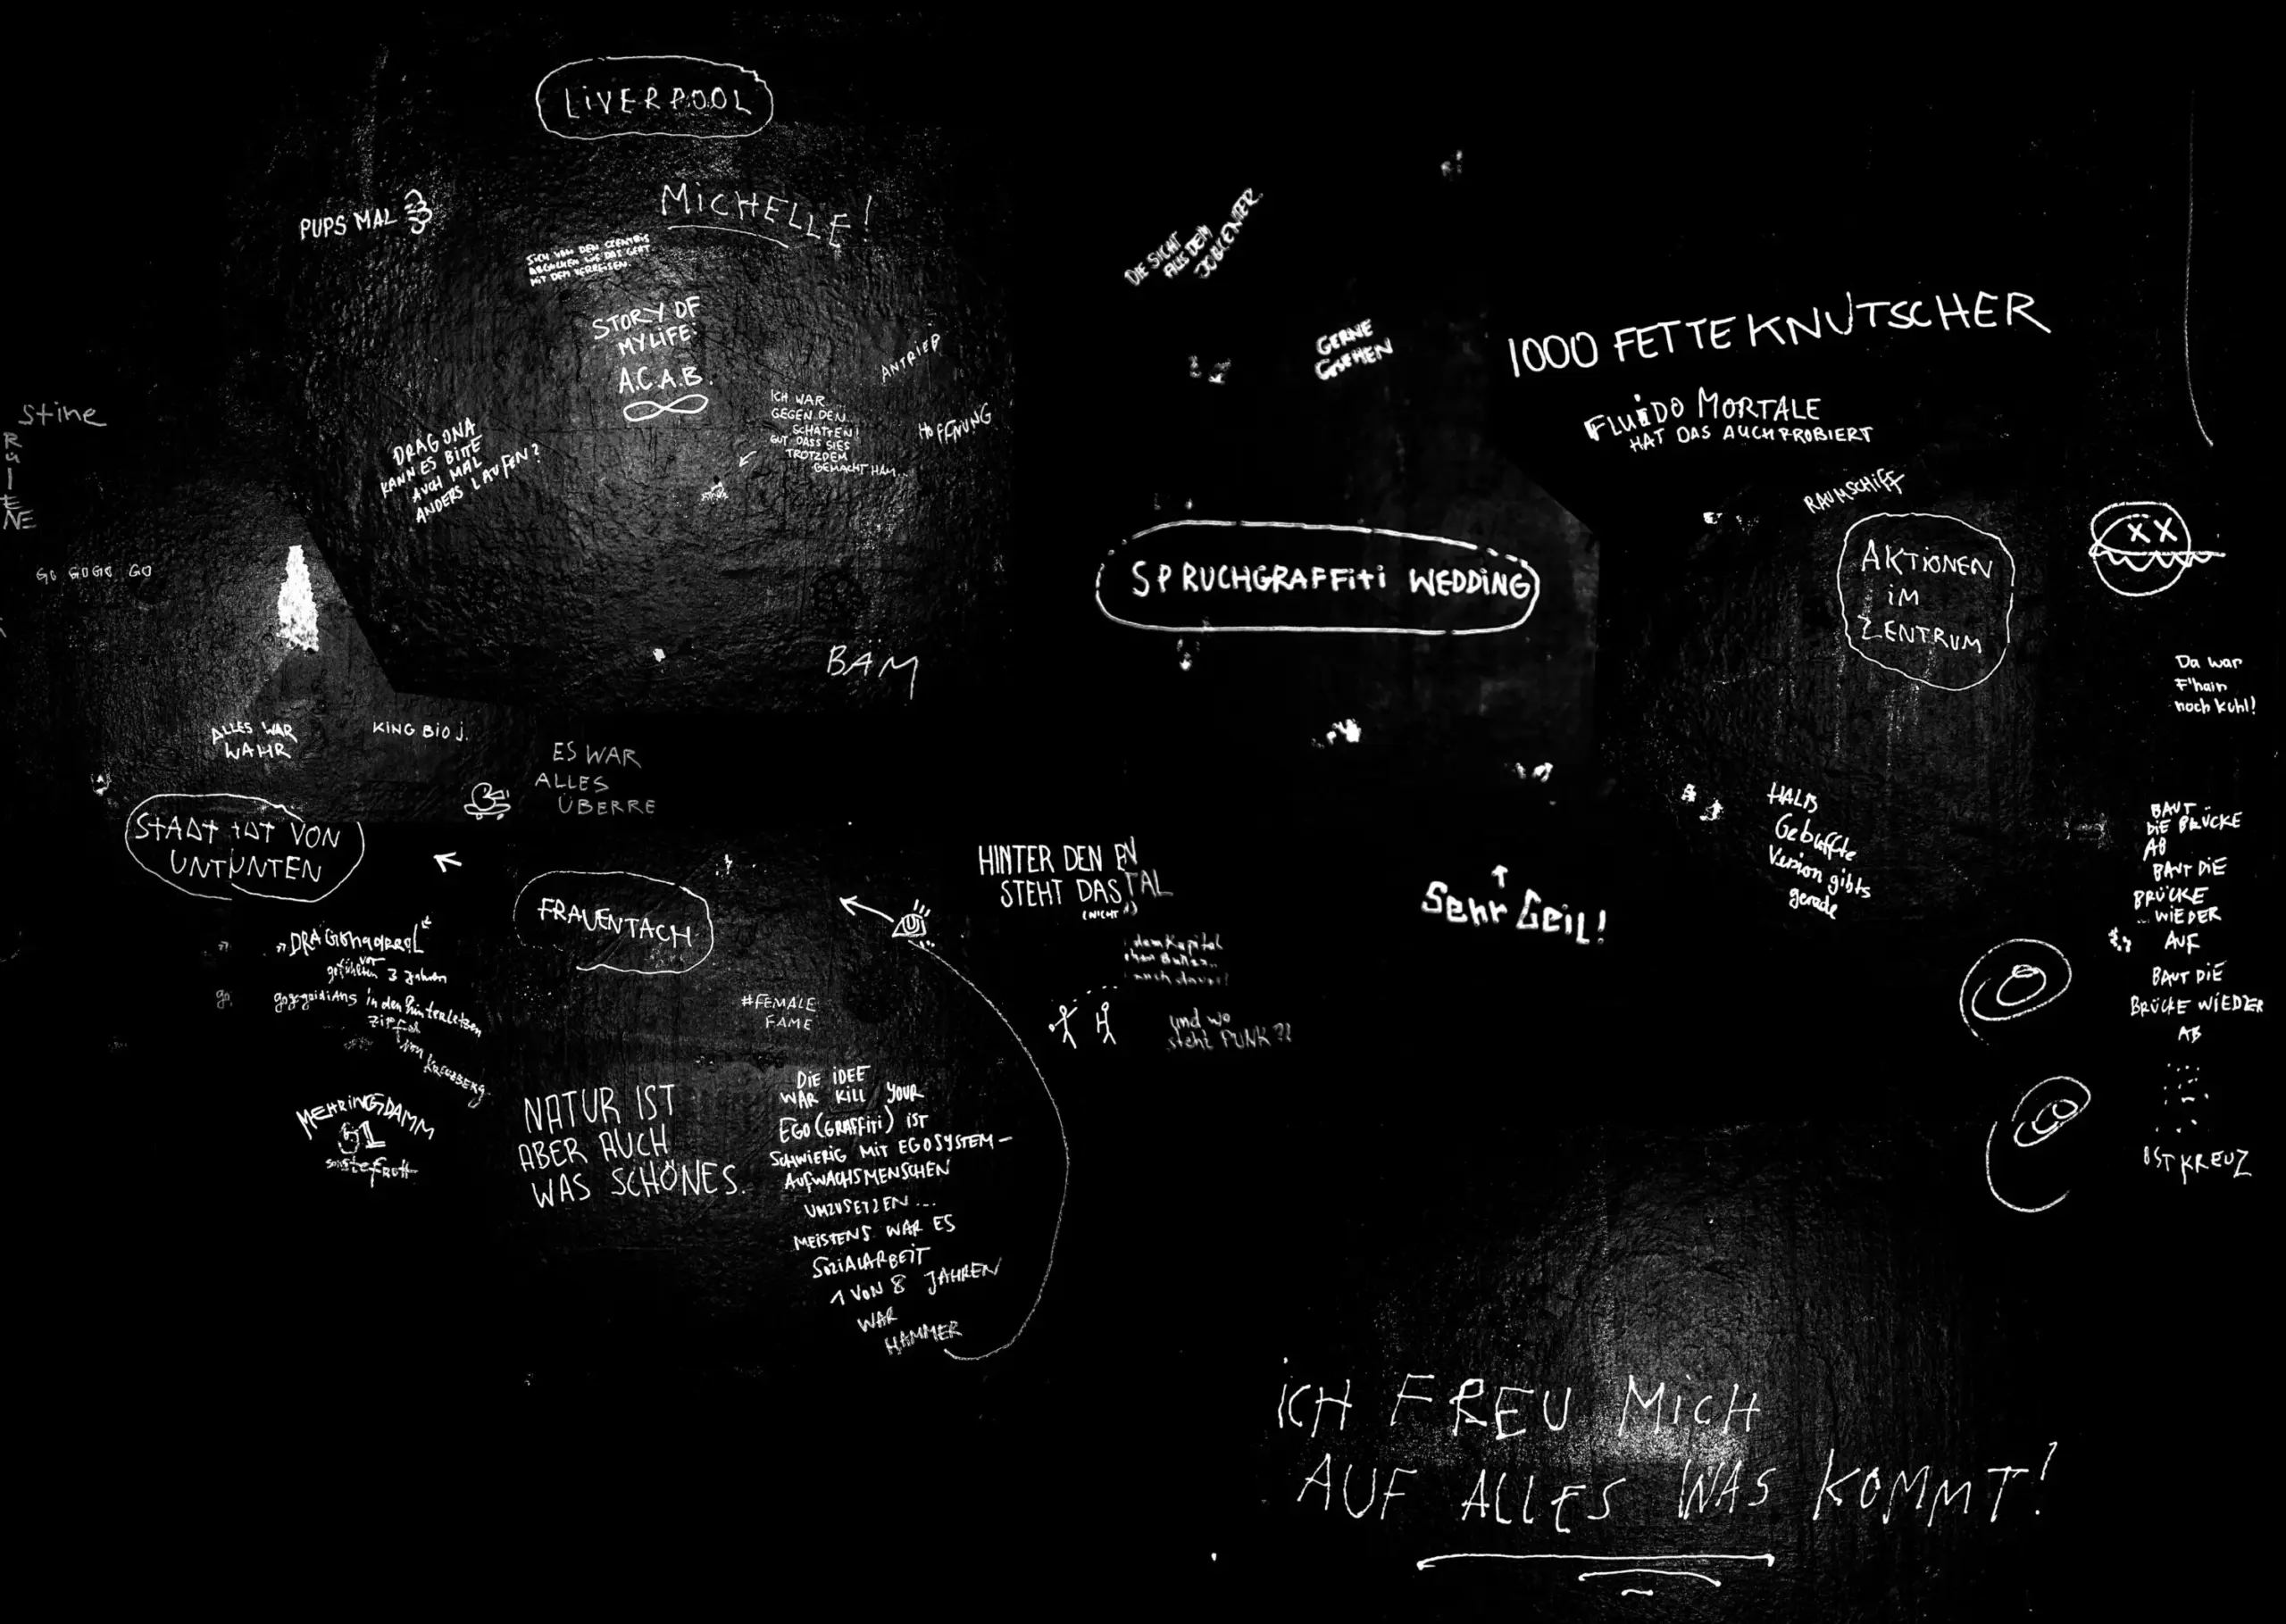 LIVERPOOL
MICHELLE!
PUPS MAL
SICH VON DEN
MIT DEM VERREISEN.
STORY OF
MY LIFE:
A.C.A.B.
ANTRIEB
HOFFNUNG
ICH WAR
GEGEN DEN
SCHATTEN!
GUT DASS SIES
TROTZDEM
GEMACHT HAM...
DRAGONA
KANN ES BITTE
AUCH MAL
ANDERS LAUFEN?
Stine
GO GOGO GO
BAM
ALLES WAR
WAHR
KING BIO J.
ES WAR
ALLES
ÜBERRE
STADT TOT VON
UNTUNTEN
FRAUENTACH
vor
gefühlten 3 Jahren
in den hinterletzen
Zipfel
von
KREUZBERG
go
MEHRINGDAMM
61
#FEMALE
FAME
NATUR IST
ABER AUCH
WAS SCHÖNES.
DIE IDEE
WAR KILL YOUR
EGO (GRAFFITI) IST
SCHWIERIG MIT EGOSYSTEM-
AUFWACHSMENSCHEN
UMZUSETZEN...
MEISTENS WAR ES
SOZIALARBEIT
1 VON 8 JAHREN
WAR
HAMMER
HINTER DEN
STEHT DAS
(NICHT)
dem Kapital
eher Bullen..
noch davor!
und wo
steht PUNK?!
DIE SICHT
AUS DEM
JOBCENTER.
GERNE
GSEHEN
SPRUCHGRAFFITI WEDDING
Sehr Geil!
1000 FETTE KNUTSCHER
FLUIDO MORTALE
HAT DAS AUCH PROBIERT
RAUMSCHIFF
AKTIONEN
IM
ZENTRUM
XX
Da war
F'hain
noch kühl!
HALB
Gebuffte
Version gibts
gerade
BAUT
DIE BRÜCKE
AB
BAUT DIE
BRÜCKE
... WIEDER
AUF
BAUT DIE
BRÜCKE WIEDER
AB
OSTKREUZ
ICH FREU MICH
AUF ALLES WAS KOMMT!